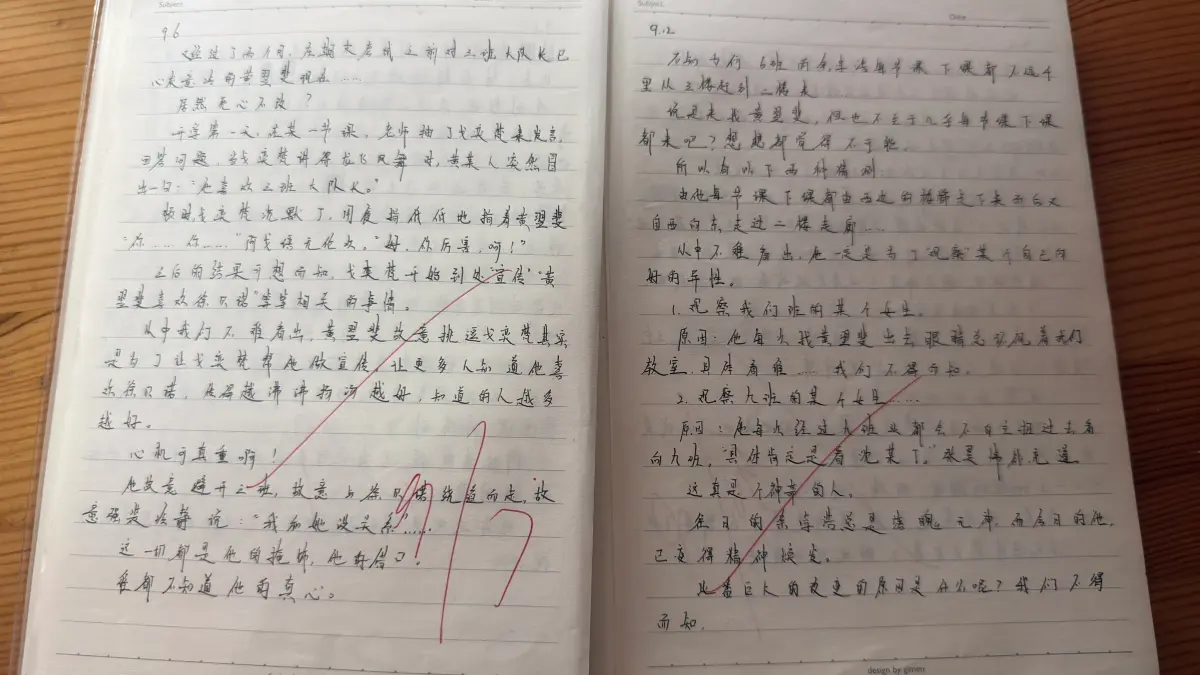 Subject
9.6
经过了两个月,后期大考试之前对三班大队长已
心灰意冷的黄翌斐现在……
居然死心不改?
开学第一天,上某一节课,老师抽了戈奕楚来发言,
回答问题,当戈奕楚讲得龙飞凤舞时,黄某人突然冒
出一句:“他喜欢三班大队长。”
顿时戈奕楚沉默了,用食指低低地指着黄翌斐
“你……你……”随戈境无他次。“好,你厉害,啊!”
之后的结果可想而知,戈奕楚开始到处“宣传”“黄
翌斐喜欢徐只诺”等等相关的事情。
从中我们不难看出,黄翌斐故意挑逗戈奕楚其实
是为了让戈奕楚帮他做宣传,让更多人知道他喜
欢徐只诺,传得越沸沸扬扬越好,知道的人越多
越好。
心机可真重啊!
他故意避开三班,故意与徐只诺绕道而走,故
意强装冷静说:“我和她没关系”……
这一切都是他的掩饰,他的借口。
谁都不知道他的真心。
9/7
Subject
Date
9.12
不知为何6班的余李浩每节课下课都不远千
里从三楼赶到二楼来
说是来找黄翌斐,但也不至于几乎每节课下课
都来吧?想想都觉得不可能。
所以有以下两种猜测:
由他每节课下课都由西边的楼梯先下来而后又
自西向东走过二楼走廊……
从中不难看出,他一定是为了“观察”某个自己向
好的异性。
1.观察我们班的某个女生。
原因:他每次找黄翌斐出去眼睛总环视着我们
教室,具体看谁……我们不得而知。
2.观察九班的某个女生……
原因:他每次经过九班必都会不自主扭过去看
向九班,“具体肯定是看沈某了。”张昊炜补充道
这真是个神奇的人。
往日的余李浩总是读晚无神,而今日的他,
已变得精神焕发。
此番巨大的改变的原因是什么呢?我们不得
而知.
design by gimen